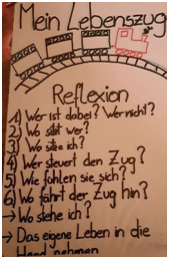 Mein Lebenszug
Reflexion
1) Wer ist dabei? Wer nicht?
2) Wo sitzt wer?
3) Wo sitze ich?
4) Wer steuert den Zug?
5) Wie fühlen sie sich?
6) Wo fährt der Zug hin?
→ Wo stehe ich?
→ Das eigene Leben in die
Hand nehmen